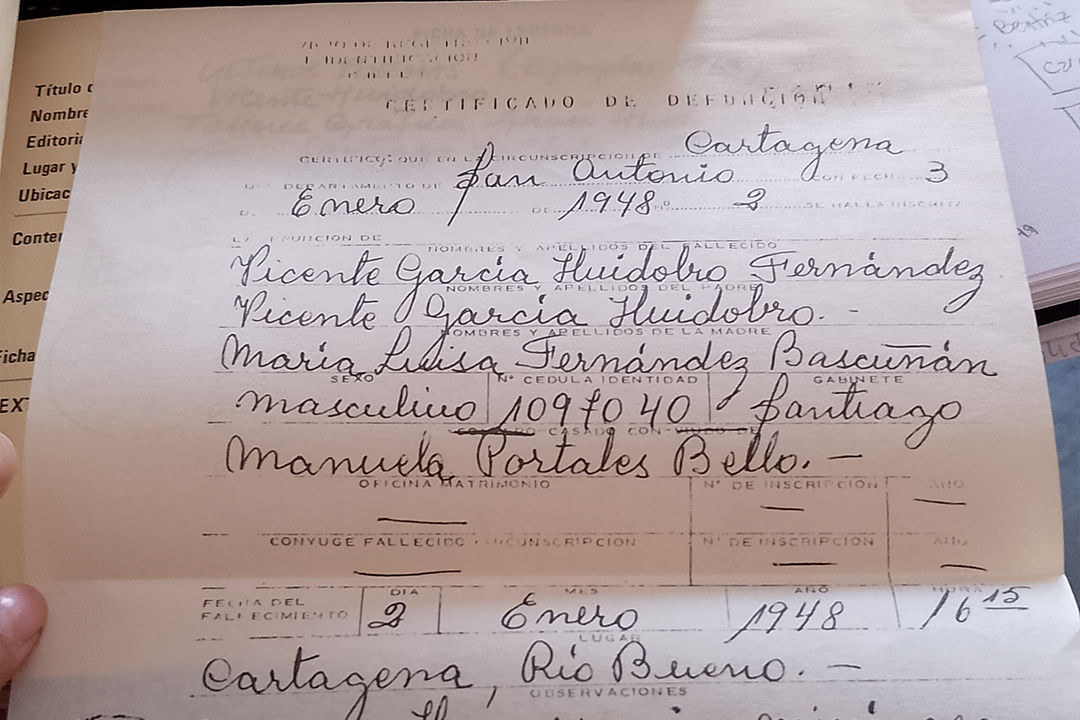 Título
Nombre
Editoria
Lugar y
Ubicac
Conte
Aspec
Ficha
EX
E IDENTIFICACION
CERTIFICADO DE DEFUNCIÓN
CERTIFICO: QUE EN LA CIRCUNSCRIPCION DE Cartagena
DEPARTAMENTO DE San Antonio CON FECHA 3
Enero DE 1948 Nº 2 SE HALLA INSCRITA
NOMBRES Y APELLIDOS DEL FALLECIDO
Vicente García Huidobro Fernández
NOMBRES Y APELLIDOS DEL PADRE
Vicente García Huidobro. -
NOMBRES Y APELLIDOS DE LA MADRE
María Luisa Fernández Bascuñán
SEXO Nº CEDULA IDENTIDAD GABINETE
masculino 1097040 Santiago
CASADO CON VIUDO DE
Manuela Portales Bello. —
OFICINA MATRIMONIO Nº DE INSCRIPCION AÑO
— — —
CONYUGE FALLECIDO CIRCUNSCRIPCION Nº DE INSCRIPCION AÑO
— — —
FECHA DEL FALLECIMIENTO DIA MES AÑO HORA
2 Enero 1948 16 15
LUGAR
Cartagena, Río Bueno. —
OBSERVACIONES
Beatriz